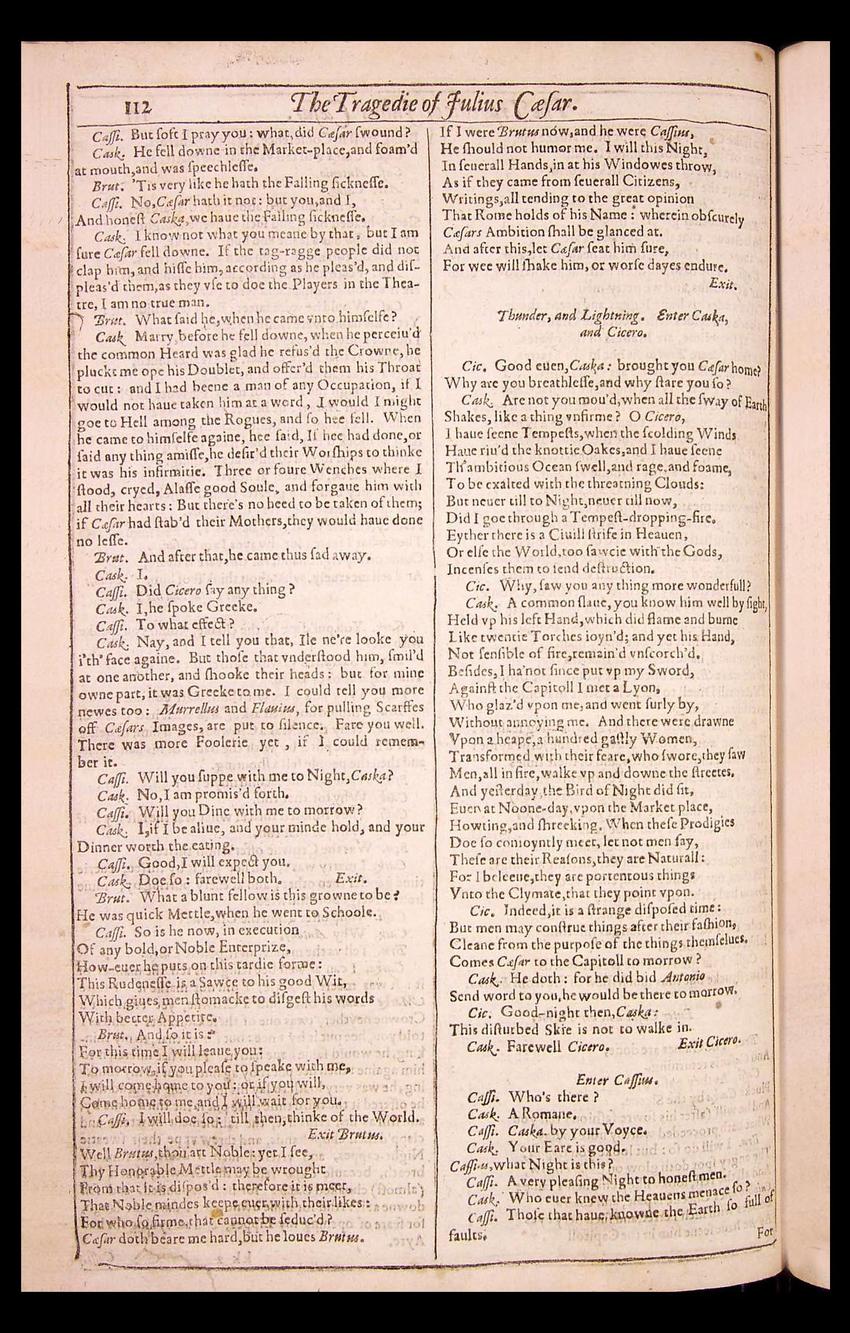 112
The Tragedie of Julius Cæsar.
Cassi. But soft I pray you: what, did Cæsar swound?
Cask. He fell downe in the Market-place, and foam'd
at mouth, and was speechlesse.
Brut. 'Tis very like he hath the Falling sicknesse.
Cassi. No, Cæsar hath it not: but you, and I,
And honest Caska, we haue the Falling sicknesse.
Cask. I know not what you meane by that, but I am
sure Cæsar fell downe. If the tag-ragge people did not
clap him, and hisse him, according as he pleas'd, and dis-
pleas'd them, as they vse to doe the Players in the Thea-
tre, I am no true man.
Brut. What said he, when he came vnto himselfe?
Cask. Marry, before he fell downe, when he perceiu'd
the common Heard was glad he refus'd the Crowne, he
pluckt me ope his Doublet, and offer'd them his Throat
to cut: and I had beene a man of any Occupation, if I
would not haue taken him at a word, I would I might
goe to Hell among the Rogues, and so hee fell. When
he came to himselfe againe, hee said, If hee had done, or
said any thing amisse, he desir'd their Worships to thinke
it was his infirmitie. Three or foure Wenches where I
stood, cryed, Alasse good Soule, and forgaue him with
all their hearts: But there's no heed to be taken of them;
if Cæsar had stab'd their Mothers, they would haue done
no lesse.
Brut. And after that, he came thus sad away.
Cask. I.
Cassi. Did Cicero say any thing?
Cask. I, he spoke Greeke.
Cassi. To what effect?
Cask. Nay, and I tell you that, Ile ne're looke you
i'th' face againe. But those that vnderstood him, smil'd
at one another, and shooke their heads: but for mine
owne part, it was Greeke to me. I could tell you more
newes too: Murrellus and Flauius, for pulling Scarffes
off Cæsars Images, are put to silence. Fare you well.
There was more Foolerie yet, if I could remem-
ber it.
Cassi. Will you suppe with me to Night, Caska?
Cask. No, I am promis'd forth.
Cassi. Will you Dine with me to morrow?
Cask. I, if I be aliue, and your minde hold, and your
Dinner worth the eating.
Cassi. Good, I will expect you.
Cask. Doe so: farewell both. Exit.
Brut. What a blunt fellow is this growne to be?
He was quick Mettle, when he went to Schoole.
Cassi. So is he now, in execution
Of any bold, or Noble Enterprize,
How-euer he puts on this tardie forme:
This Rudenesse is a Sawce to his good Wit,
Which giues men stomacke to disgest his words
With better Appetite.
Brut. And so it is:
For this time I will leaue you:
To morrow, if you please to speake with me,
I will come home to you: or if you will,
Come home to me, and I will wait for you.
Cassi. I will doe so: till then, thinke of the World.
Exit Brutus.
Well Brutus, thou art Noble: yet I see,
Thy Honorable Mettle may be wrought
From that it is dispos'd: therefore it is meet,
That Noble mindes keepe euer with their likes:
For who so firme, that cannot be seduc'd?
Cæsar doth beare me hard, but he loues Brutus.
If I were Brutus now, and he were Cassius,
He should not humor me. I will this Night,
In seuerall Hands, in at his Windowes throw,
As if they came from seuerall Citizens,
Writings, all tending to the great opinion
That Rome holds of his Name: wherein obscurely
Cæsars Ambition shall be glanced at.
And after this, let Cæsar seat him sure,
For wee will shake him, or worse dayes endure.
Exit.
Thunder, and Lightning. Enter Caska,
and Cicero.
Cic. Good euen, Caska: brought you Cæsar home?
Why are you breathlesse, and why stare you so?
Cask. Are not you mou'd, when all the sway of Earth
Shakes, like a thing vnfirme? O Cicero,
I haue seene Tempests, when the scolding Winds
Haue riu'd the knottie Oakes, and I haue seene
Th'ambitious Ocean swell, and rage, and foame,
To be exalted with the threatning Clouds:
But neuer till to Night, neuer till now,
Did I goe through a Tempest-dropping-fire.
Eyther there is a Ciuill strife in Heauen,
Or else the World, too sawcie with the Gods,
Incenses them to send destruction.
Cic. Why, saw you any thing more wonderfull?
Cask. A common slaue, you know him well by sight,
Held vp his left Hand, which did flame and burne
Like twentie Torches ioyn'd; and yet his Hand,
Not sensible of fire, remain'd vnscorch'd.
Besides, I ha'not since put vp my Sword,
Against the Capitoll I met a Lyon,
Who glaz'd vpon me, and went surly by,
Without annoying me. And there were drawne
Vpon a heape, a hundred gastly Women,
Transformed with their feare, who swore, they saw
Men, all in fire, walke vp and downe the streetes.
And yesterday, the Bird of Night did sit,
Euen at Noone-day, vpon the Market place,
Howting, and shreeking. When these Prodigies
Doe so conioyntly meet, let not men say,
These are their Reasons, they are Naturall:
For I beleeue, they are portentous things
Vnto the Clymate, that they point vpon.
Cic. Indeed, it is a strange disposed time:
But men may construe things after their fashion,
Cleane from the purpose of the things themselues.
Comes Cæsar to the Capitoll to morrow?
Cask. He doth: for he did bid Antonio
Send word to you, he would be there to morrow.
Cic. Good-night then, Caska:
This disturbed Skie is not to walke in.
Cask. Farewell Cicero. Exit Cicero.
Enter Cassius.
Cassi. Who's there?
Cask. A Romane.
Cassi. Caska, by your Voyce.
Cask. Your Eare is good.
Cassius, what Night is this?
Cassi. A very pleasing Night to honest men.
Cask. Who euer knew the Heauens menace so?
Cassi. Those that haue knowne the Earth so full of
faults.
For